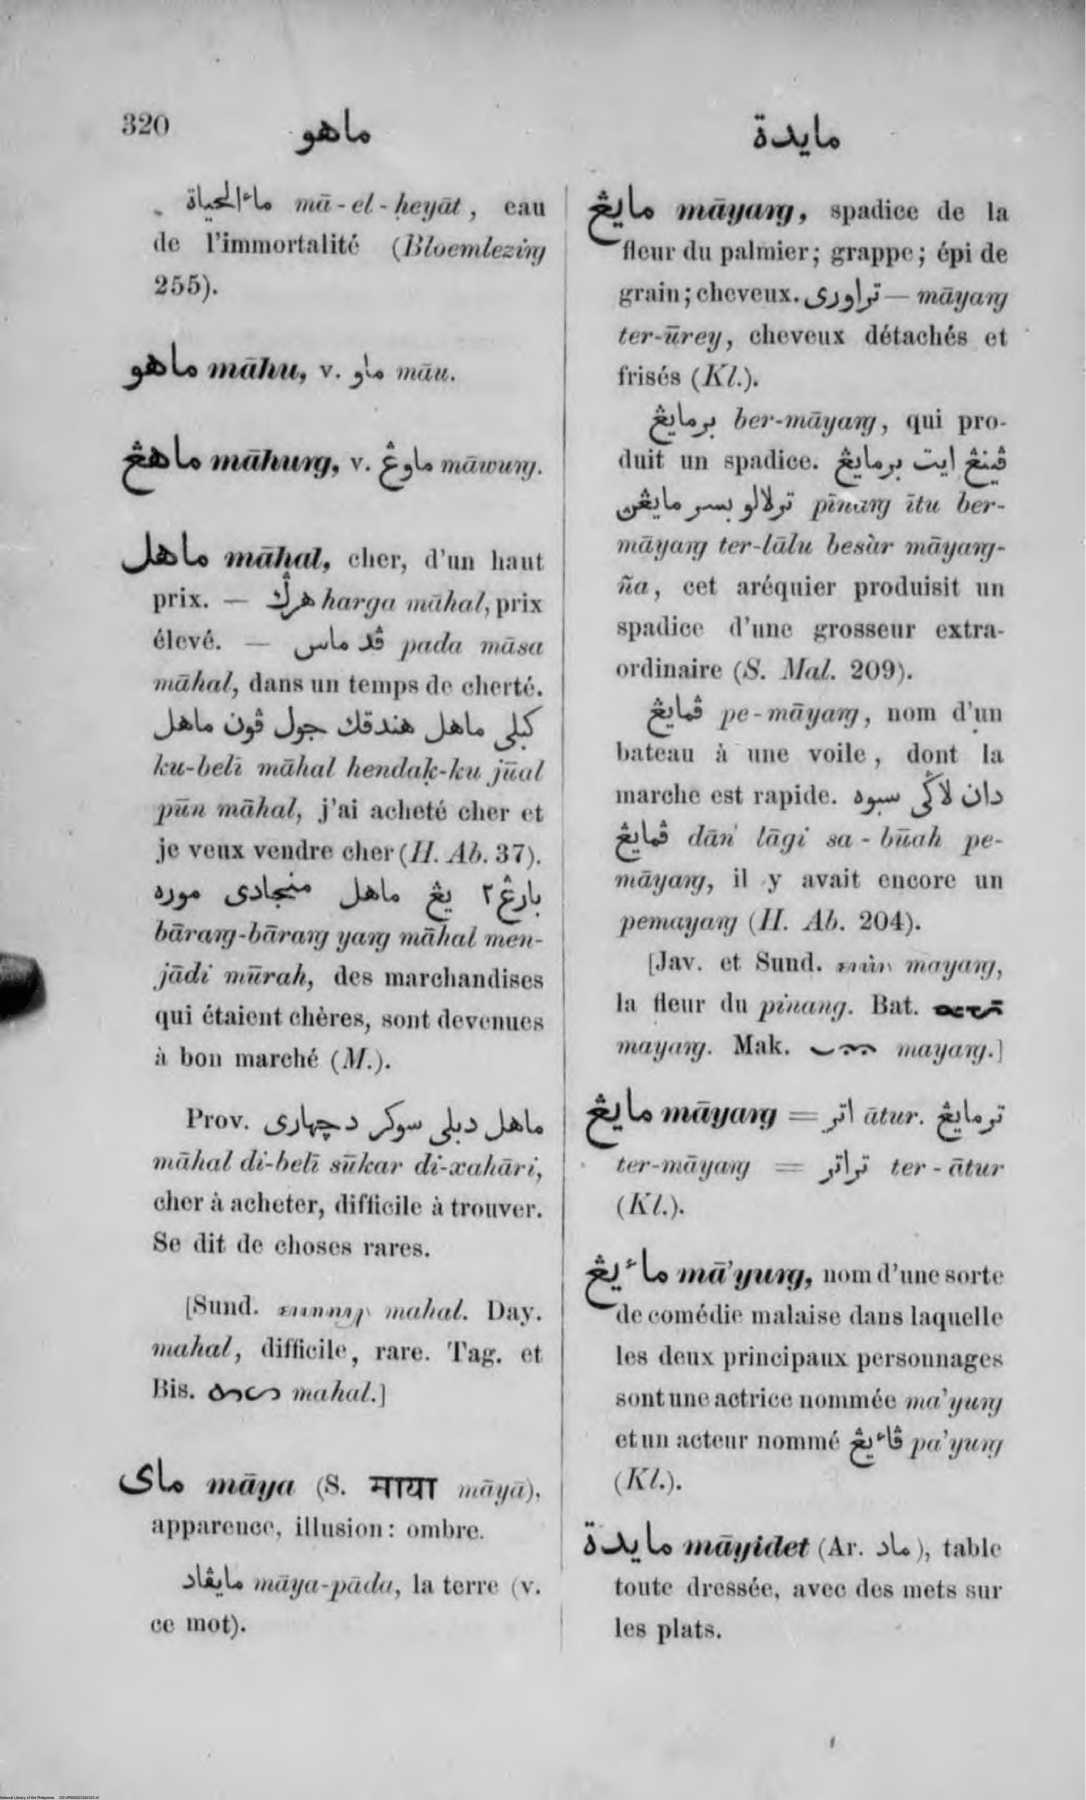 320
ماهو
مايدة
ماءالحياة mā-el-ḥeyāt, eau
de l'immortalité (Bloemlezing
255).
ماهو māhu, v. ماو māu.
ماهڠ māhung, v. ماوڠ māwung.
ماهل māhal, cher, d'un haut
prix. — هرݢ harga māhal, prix
élevé. — ڤد ماس pada māsa
māhal, dans un temps de cherté.
كبلي ماهل هندقك جول ڤون ماهل
ku-belī māhal hendaḳ-ku jūal
pūn māhal, j'ai acheté cher et
je veux vendre cher (H. Ab. 37).
بارڠ٢ يڠ ماهل منجادى موره
bārang-bārang yang māhal men-
jādi mūrah, des marchandises
qui étaient chères, sont devenues
à bon marché (M.).
Prov. ماهل دبلي سوكر دچهارى
māhal di-belī sūkar di-xahāri,
cher à acheter, difficile à trouver.
Se dit de choses rares.
[Sund. mahal. Day.
mahal, difficile, rare. Tag. et
Bis. mahal.]
ماى māya (S. माया māyā),
apparence, illusion: ombre.
مايڤاد māya-pāda, la terre (v.
ce mot).
مايڠ māyang, spadice de la
fleur du palmier; grappe; épi de
grain; cheveux. تراورى — māyang
ter-ūrey, cheveux détachés et
frisés (Kl.).
برمايڠ ber-māyang, qui pro-
duit un spadice. ڤينڠ ايت برمايڠ
ترلالو بسر مايڠن pīnang ītu ber-
māyang ter-lālu besàr māyang-
ña, cet aréquier produisit un
spadice d'une grosseur extra-
ordinaire (S. Mal. 209).
ڤمايڠ pe-māyang, nom d'un
bateau à une voile, dont la
marche est rapide. دان لاݢي سبوه
ڤمايڠ dān lāgi sa-būah pe-
māyang, il y avait encore un
pemayang (H. Ab. 204).
[Jav. et Sund. mayang,
la fleur du pinang. Bat.
mayang. Mak. mayang.]
مايڠ māyang = اتر ātur. ترمايڠ
ter-māyang = تراتر ter-ātur
(Kl.).
ماءيڠ mā'yung, nom d'une sorte
de comédie malaise dans laquelle
les deux principaux personnages
sont une actrice nommée ma'yung
et un acteur nommé ڤاءيڠ pa'yung
(Kl.).
مايدة māyidet (Ar. ماد), table
toute dressée, avec des mets sur
les plats.